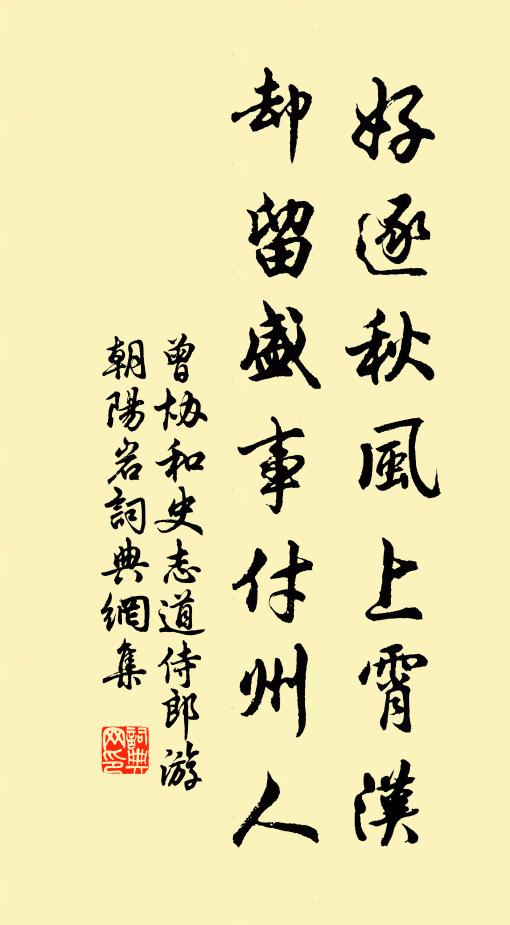 好逐秋風上霄漢
却留盛事付州人
曾協和史志道侍郎游
朝陽岩詞典網集
詞典网印